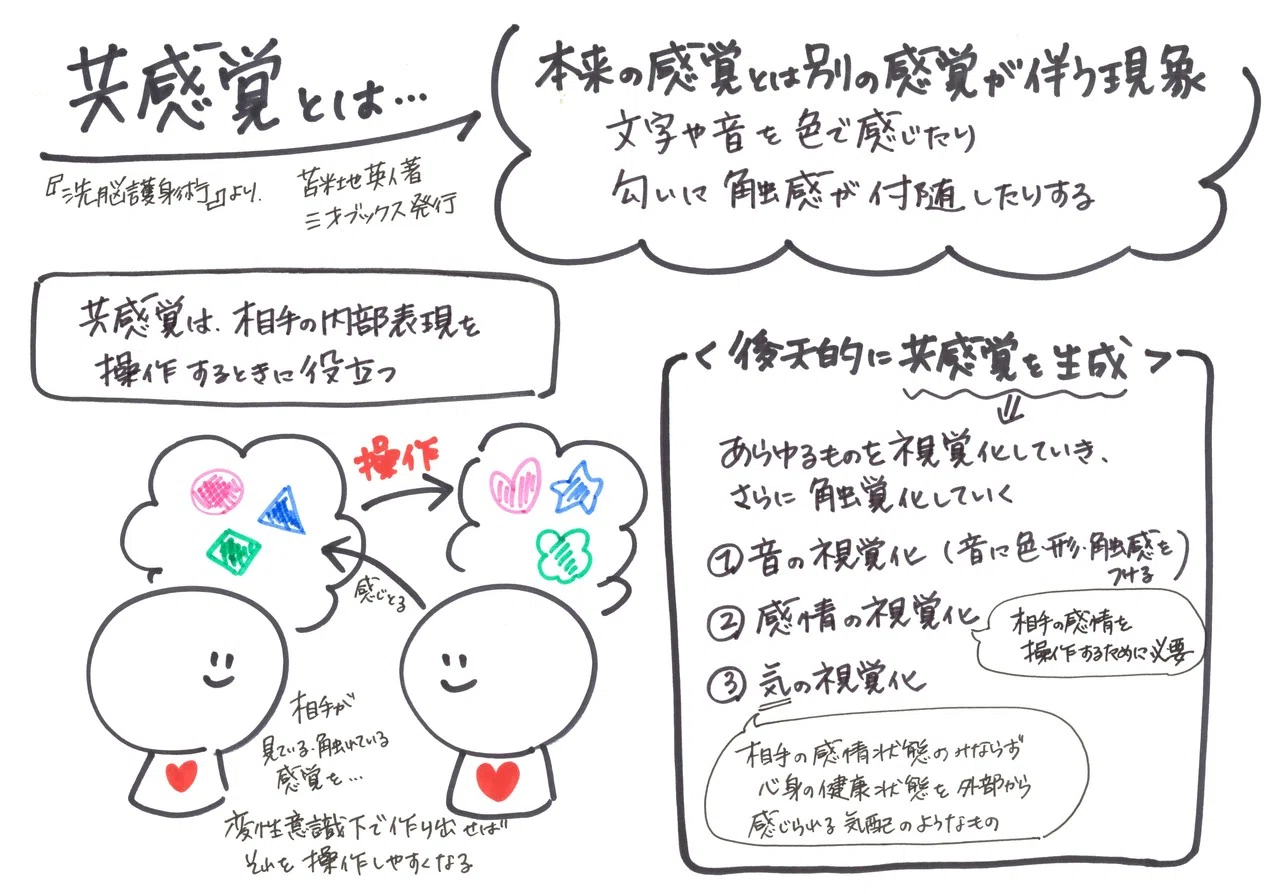 共感覚とは…
『洗脳護身術』より.
苫米地英人著
三才ブックス発行
本来の感覚とは別の感覚が伴う現象
文字や音を色で感じたり
匂いに触感が付随したりする
共感覚は、相手の内部表現を
操作するときに役立つ
操作
感じとる
相手が
見ている・触れている
感覚を…
変性意識下で作り出せば
それを操作しやすくなる
<後天的に共感覚を生成>
⇓
あらゆるものを視覚化していき、
さらに触覚化していく
①音の視覚化(音に色・形・触感を
つける)
②感情の視覚化
相手の感情を
操作するために必要
③気の視覚化
相手の感情状態のみならず
心身の健康状態を外部から
感じられる気配のようなもの